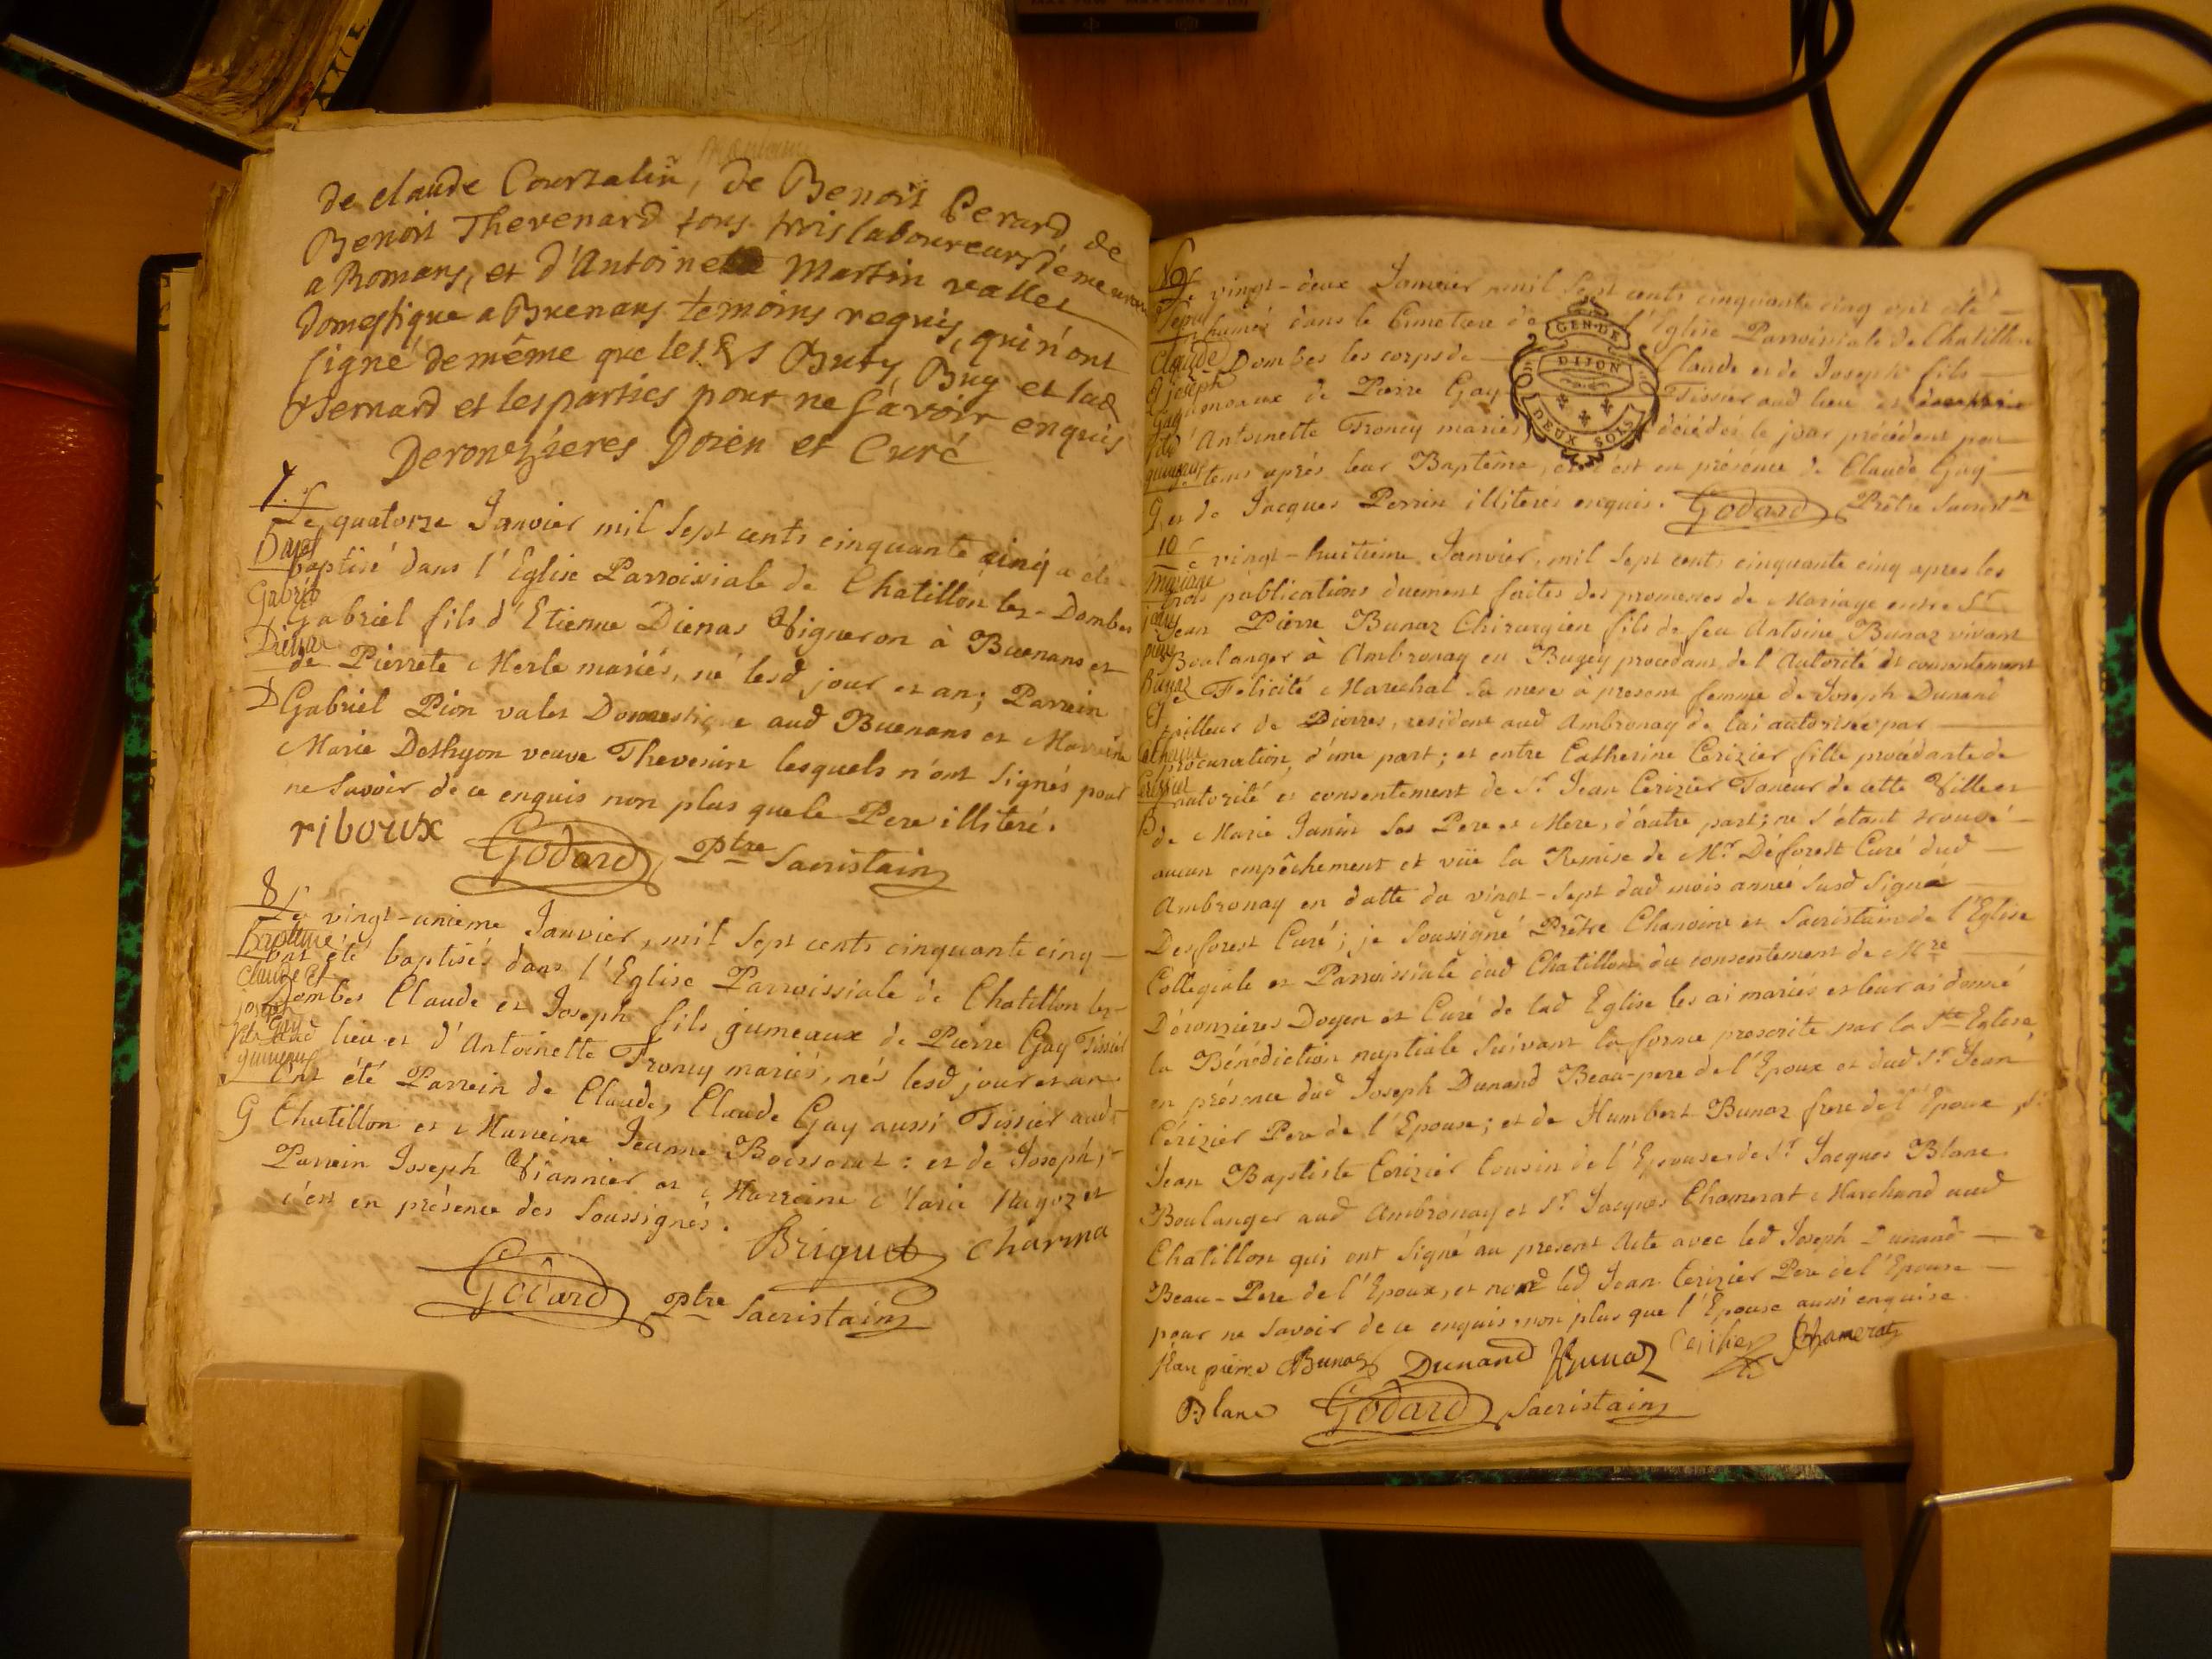 de claude Courtalin, de Benoit Perard, de
Benoit Thevenard tous trois laboureurs demeurans
a Romans, et d'Antoinette Martin vallet
domestique a Buenans temoins requis, qui n'ont
signé de même que les Srs Buty, Buy et lad
Bernard et les parties pour ne savoir enquis
Deronzieres Doien et Curé
7.
Le quatorze Janvier mil sept cents cinquante cinq a été
Bapt
baptisé dans l'Eglise Parroissiale de Chatillon lez-Dombes
Gabriel
Gabriel fils d'Etienne Dienas Vigneron à Buenans et
de Pierrete Merle mariés, né lesd jour et an; Parrein
D
Gabriel Pion valet Domestique aud Buenans et Marreine
Marie Deshyon veuve Thevenin lesquels n'ont signés pour
ne savoir de ce enquis non plus que le Pere illiteré.
riboux Godard Ptre Sacristain
8
Le vingt-unieme Janvier, mil sept cents cinquante cinq
Baptême
ont été baptisés dans l'Eglise Parroissiale de Chatillon lez-
Claude et
Dombes Claude et Joseph fils jumeaux de Pierre Gay Tissier
joseph
aud lieu et d'Antoinette Froncy mariés, nés lesd jour et an.
fils Gay
jumeaux
Ont été Parrein de Claude, Claude Gay aussi Tissier aud
G
Chatillon et Marreine Jeanne Boissorat: et de Joseph;
Parrein Joseph Viannier et Marreine Marie
c'est en présence des Soussignés.
Briquet charma
Godard Ptre Sacristain
Le vingt-deux Janvier mil sept cents cinquante cinq ont été
Sepul
inhumés dans le Cimetiere de l'Eglise Parroissiale de Chatillon
GEN DE
DIJON
DEUX SOLS
Claude
Dombes les corps de Claude et de Joseph fils
et joseph
jumeaux de Pierre Gay Tissier aud lieu et
Gay
d'Antoinette Froncy mariés, décédés le jour précédent peu
fils
jumeaux
tems après leur Baptême, et c'est en présence de Claude Gay
G
et de Jacques Perrin illiterés enquis. Godard Prêtre Sacristn
10
Le vingt-huitieme Janvier, mil sept cents cinquante cinq apres les
mariage
trois publications duement faites des promesses de Mariage entre Sr
jean
Jean Pierre Bunaz Chirurgien fils de feu Antoine Bunaz vivant
pierre
Boulanger à Ambronay en Bugey procedant de l'Autorité et consentement
Bunaz
de Felicité Marechal sa mere à present femme de Joseph Dunand
Et
tailleur de Pierres, resident aud Ambronay de lui autorisée par
procuration, d'une part; et entre Catherine Cerizier fille procedante de
Cerizier
l'autorité et consentement de Sr Jean Cerizier Taneur de cette Ville et
B
de Marie Janin ses Pere et Mere, d'autre part; ne s'étant trouvé
aucun empêchement et vüe la Remise de Mr Déforest Curé dud
Ambronay en datte du vingt-sept dud mois année susd signé
Desforest Curé; je Soussigné Prêtre Chanoine et Sacristain de l'Eglise
Collegiale et Parroissiale dud Chatillon du consentement de Mre
Déronzieres Doyen et Curé de lad Eglise les ai mariés et leur ai donné
la Bénédiction nuptiale suivant la forme prescrite par la Ste Eglise,
en présence dud Joseph Dunand Beau-pere de l'Epoux et dud Sr Jean
Cérizier Pere de l'Epouse; et de Humbert Bunaz frere de l'Epoux, Sr
Jean Baptiste Cerizier Cousin de l'Epouse, de Sr Jacques Blanc
Boulanger aud Ambronay et Sr Jacques Chamerat Marchand aud
Chatillon qui ont signé au present Acte avec led Joseph Dunand
Beau-Pere de l'Epoux, et non led Jean Cerizier Pere de l'Epouse
pour ne savoir de ce enquis non plus que l'Epouse aussi enquise.
Jean pierre Bunaz Dunand HBunaz Cerisier JChamerat
Blanc Godard Sacristain